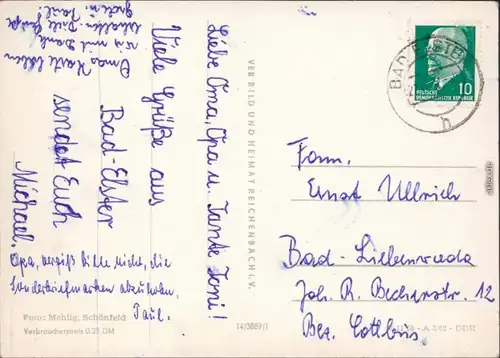 Liebe Oma, Opa u. Tante Toni!
Viele Grüße aus
Bad-Elster
sendet Euch
Michael.
Omas Karte haben
wir mit Dank
erhalten. Viele Grüße
Paul!
Opa, vergiß bitte nicht, die
Sonderbriefmarken abzuholen.
Paul.
Foto: Mehlig, Schönfeld
Verbraucherpreis 0.25 DM
VEB BILD UND HEIMAT REICHENBACH I. V.
14/3889/1
BAD ELSTER
h
10
DEUTSCHE
DEMOKRATISCHE REPUBLIK
Fam.
Ernst Ullrich
Bad-Liebenwerda
Joh. R. Becherstr. 12
Bez. Cottbus
DDR